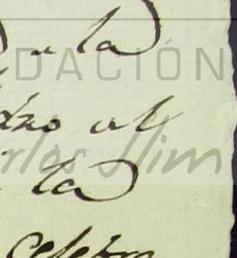 a la
DACIÓN
dro al
rlos Slim
la
celebra